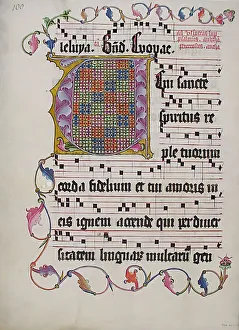 100
leluya. Bnd. Woyae.
eni sancte
spiritus re
ple tuorum
corda fidelium et tui amoris in
eis ignem accende qui per diuer
sitatem linguarum multarum gen